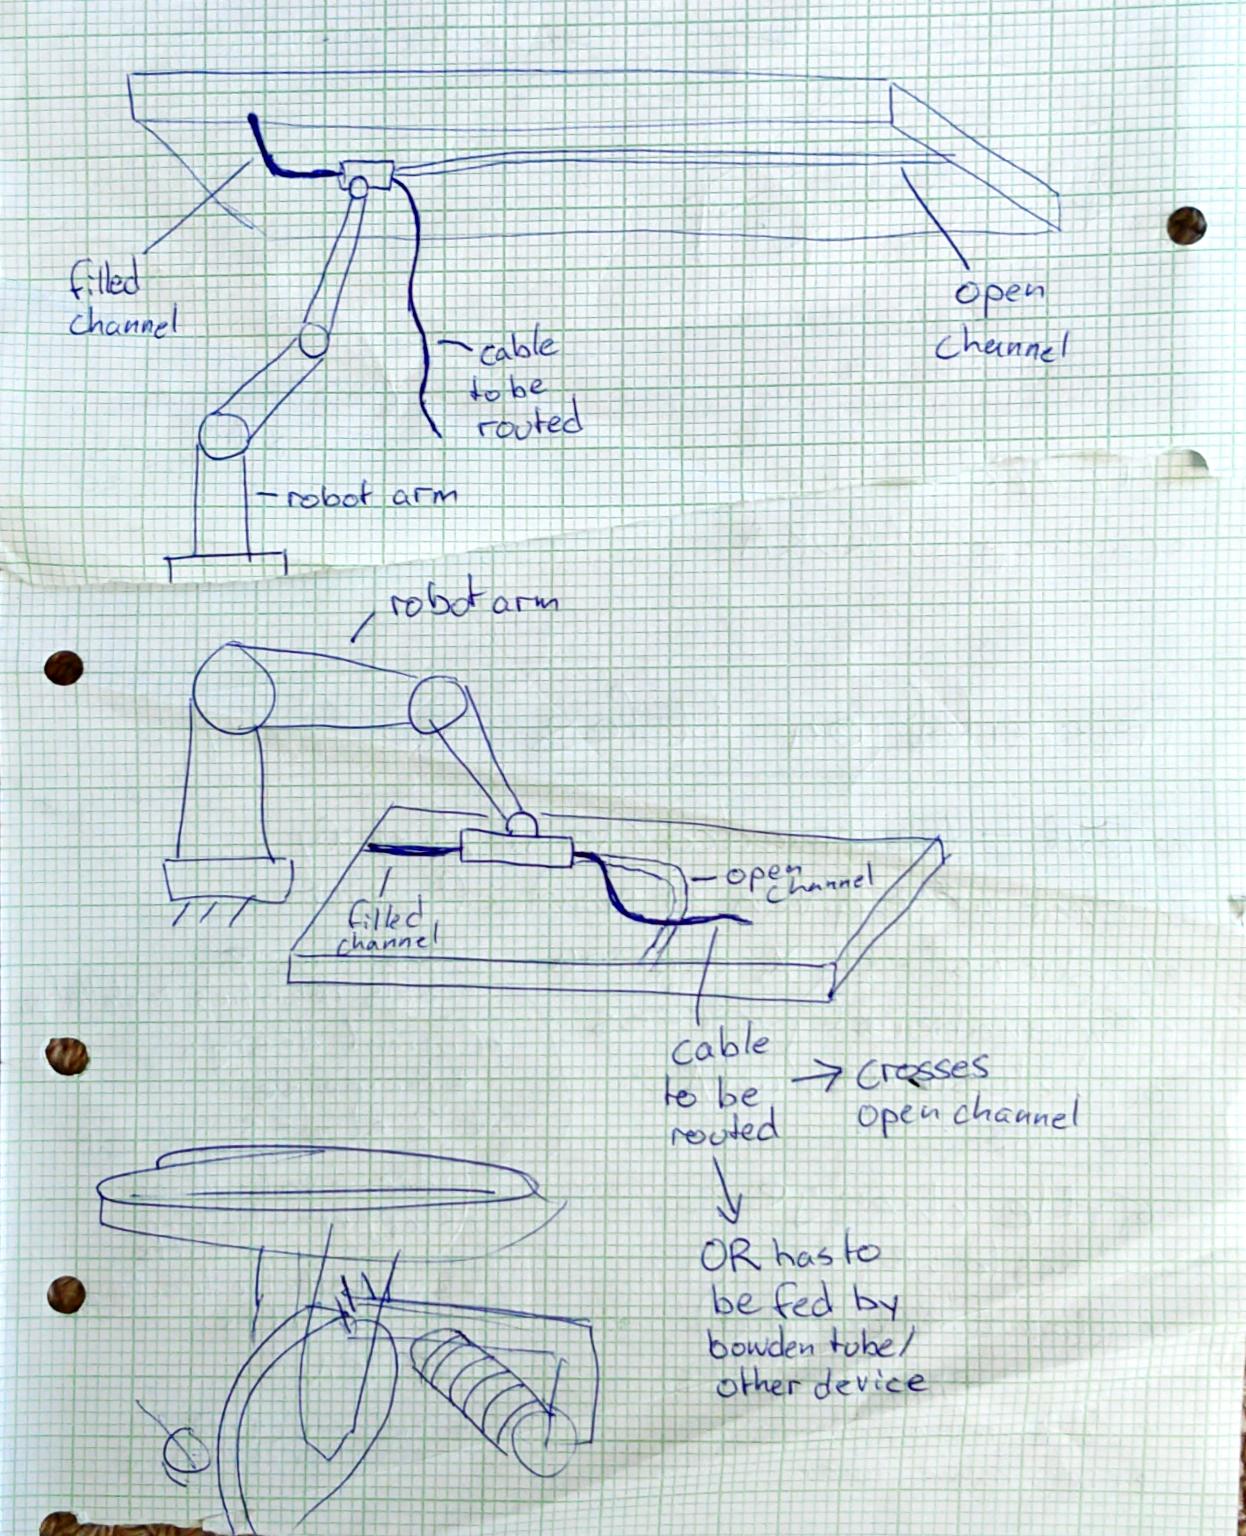 filled
channel
open
channel
cable
to be
routed
robot arm
robot arm
open
channel
filled
channel
cable
to be
routed
→ crosses
open channel
OR has to
be fed by
bowden tube/
other device